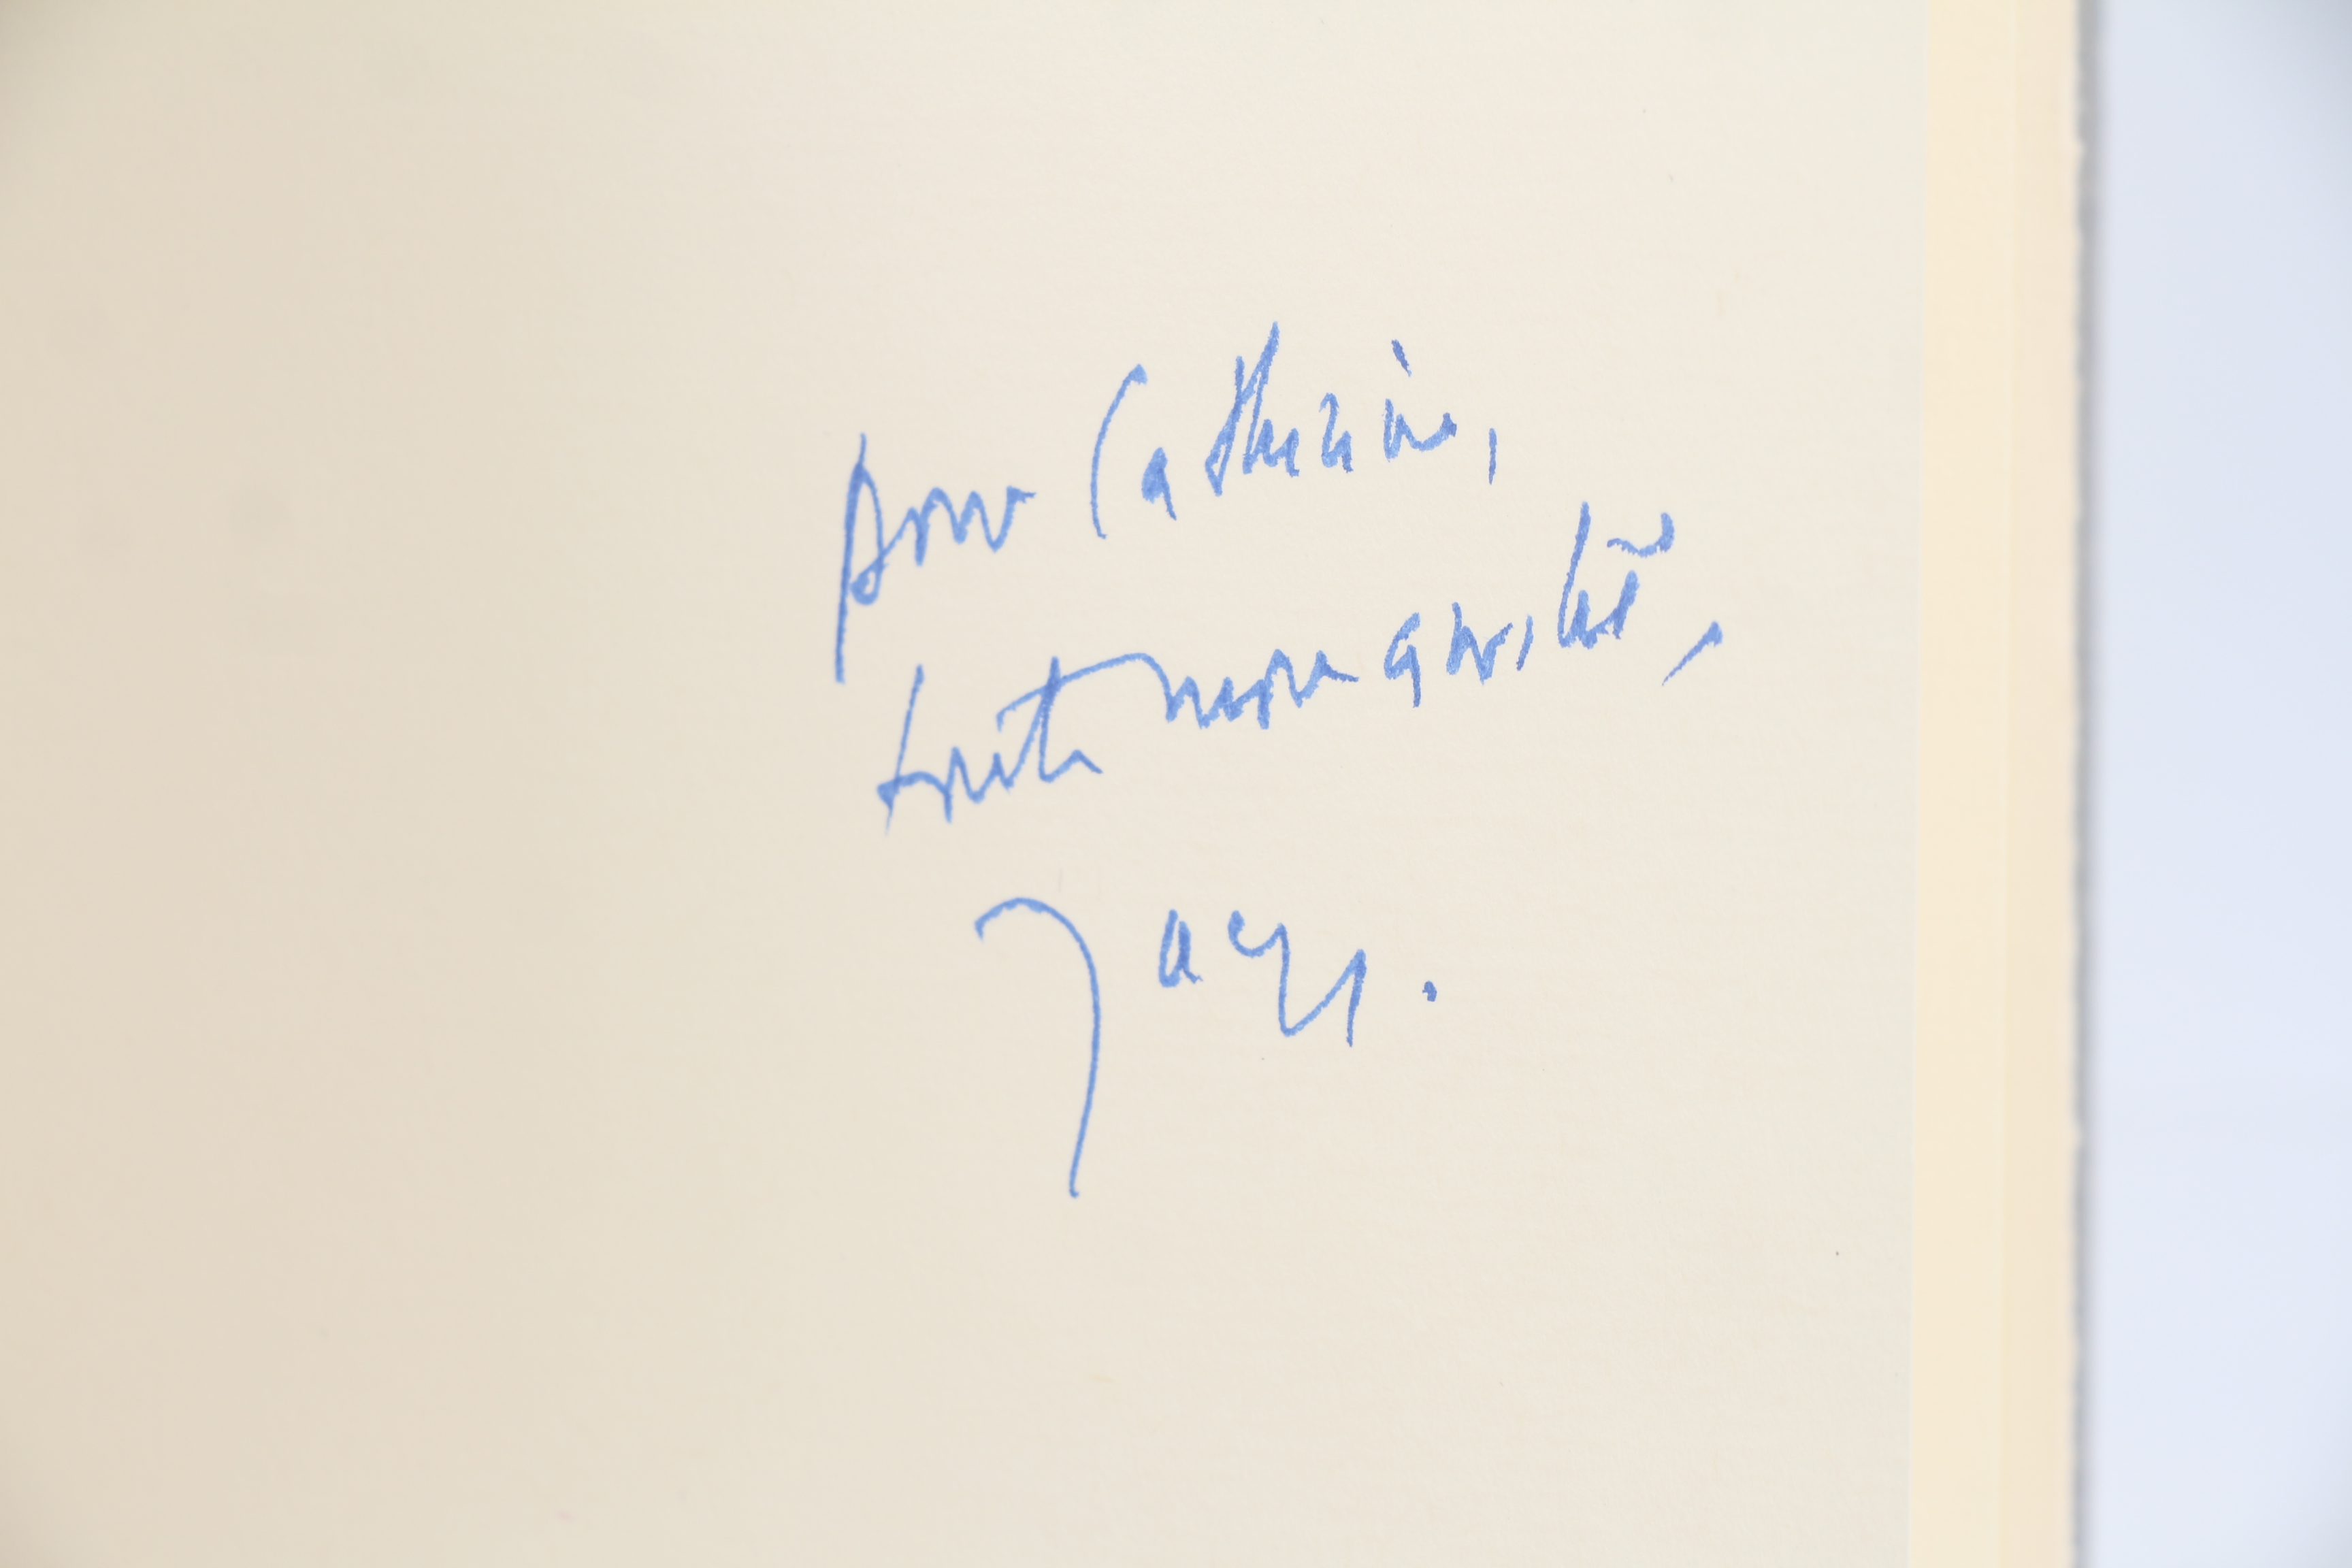 Pour Catherine,
toute mon amitié,
Jacq.